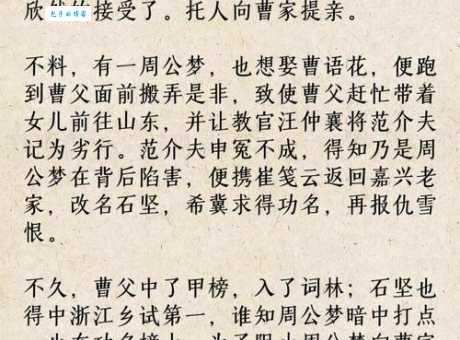 欣然的接受了。托人向曹家提亲。
不料，有一周公梦，也想娶曹语花，便跑
到曹父面前搬弄是非，致使曹父赶忙带着
女儿前往山东，并让教官汪仲襄将范介夫
记为劣行。范介夫申冤不成，得知乃是周
公梦在背后陷害，便携崔笺云返回嘉兴老
家，改名石坚，希冀求得功名，再报仇雪
恨。
不久，曹父中了甲榜，入了词林；石坚也
得中浙江乡试第一，谁知周公梦暗中打点